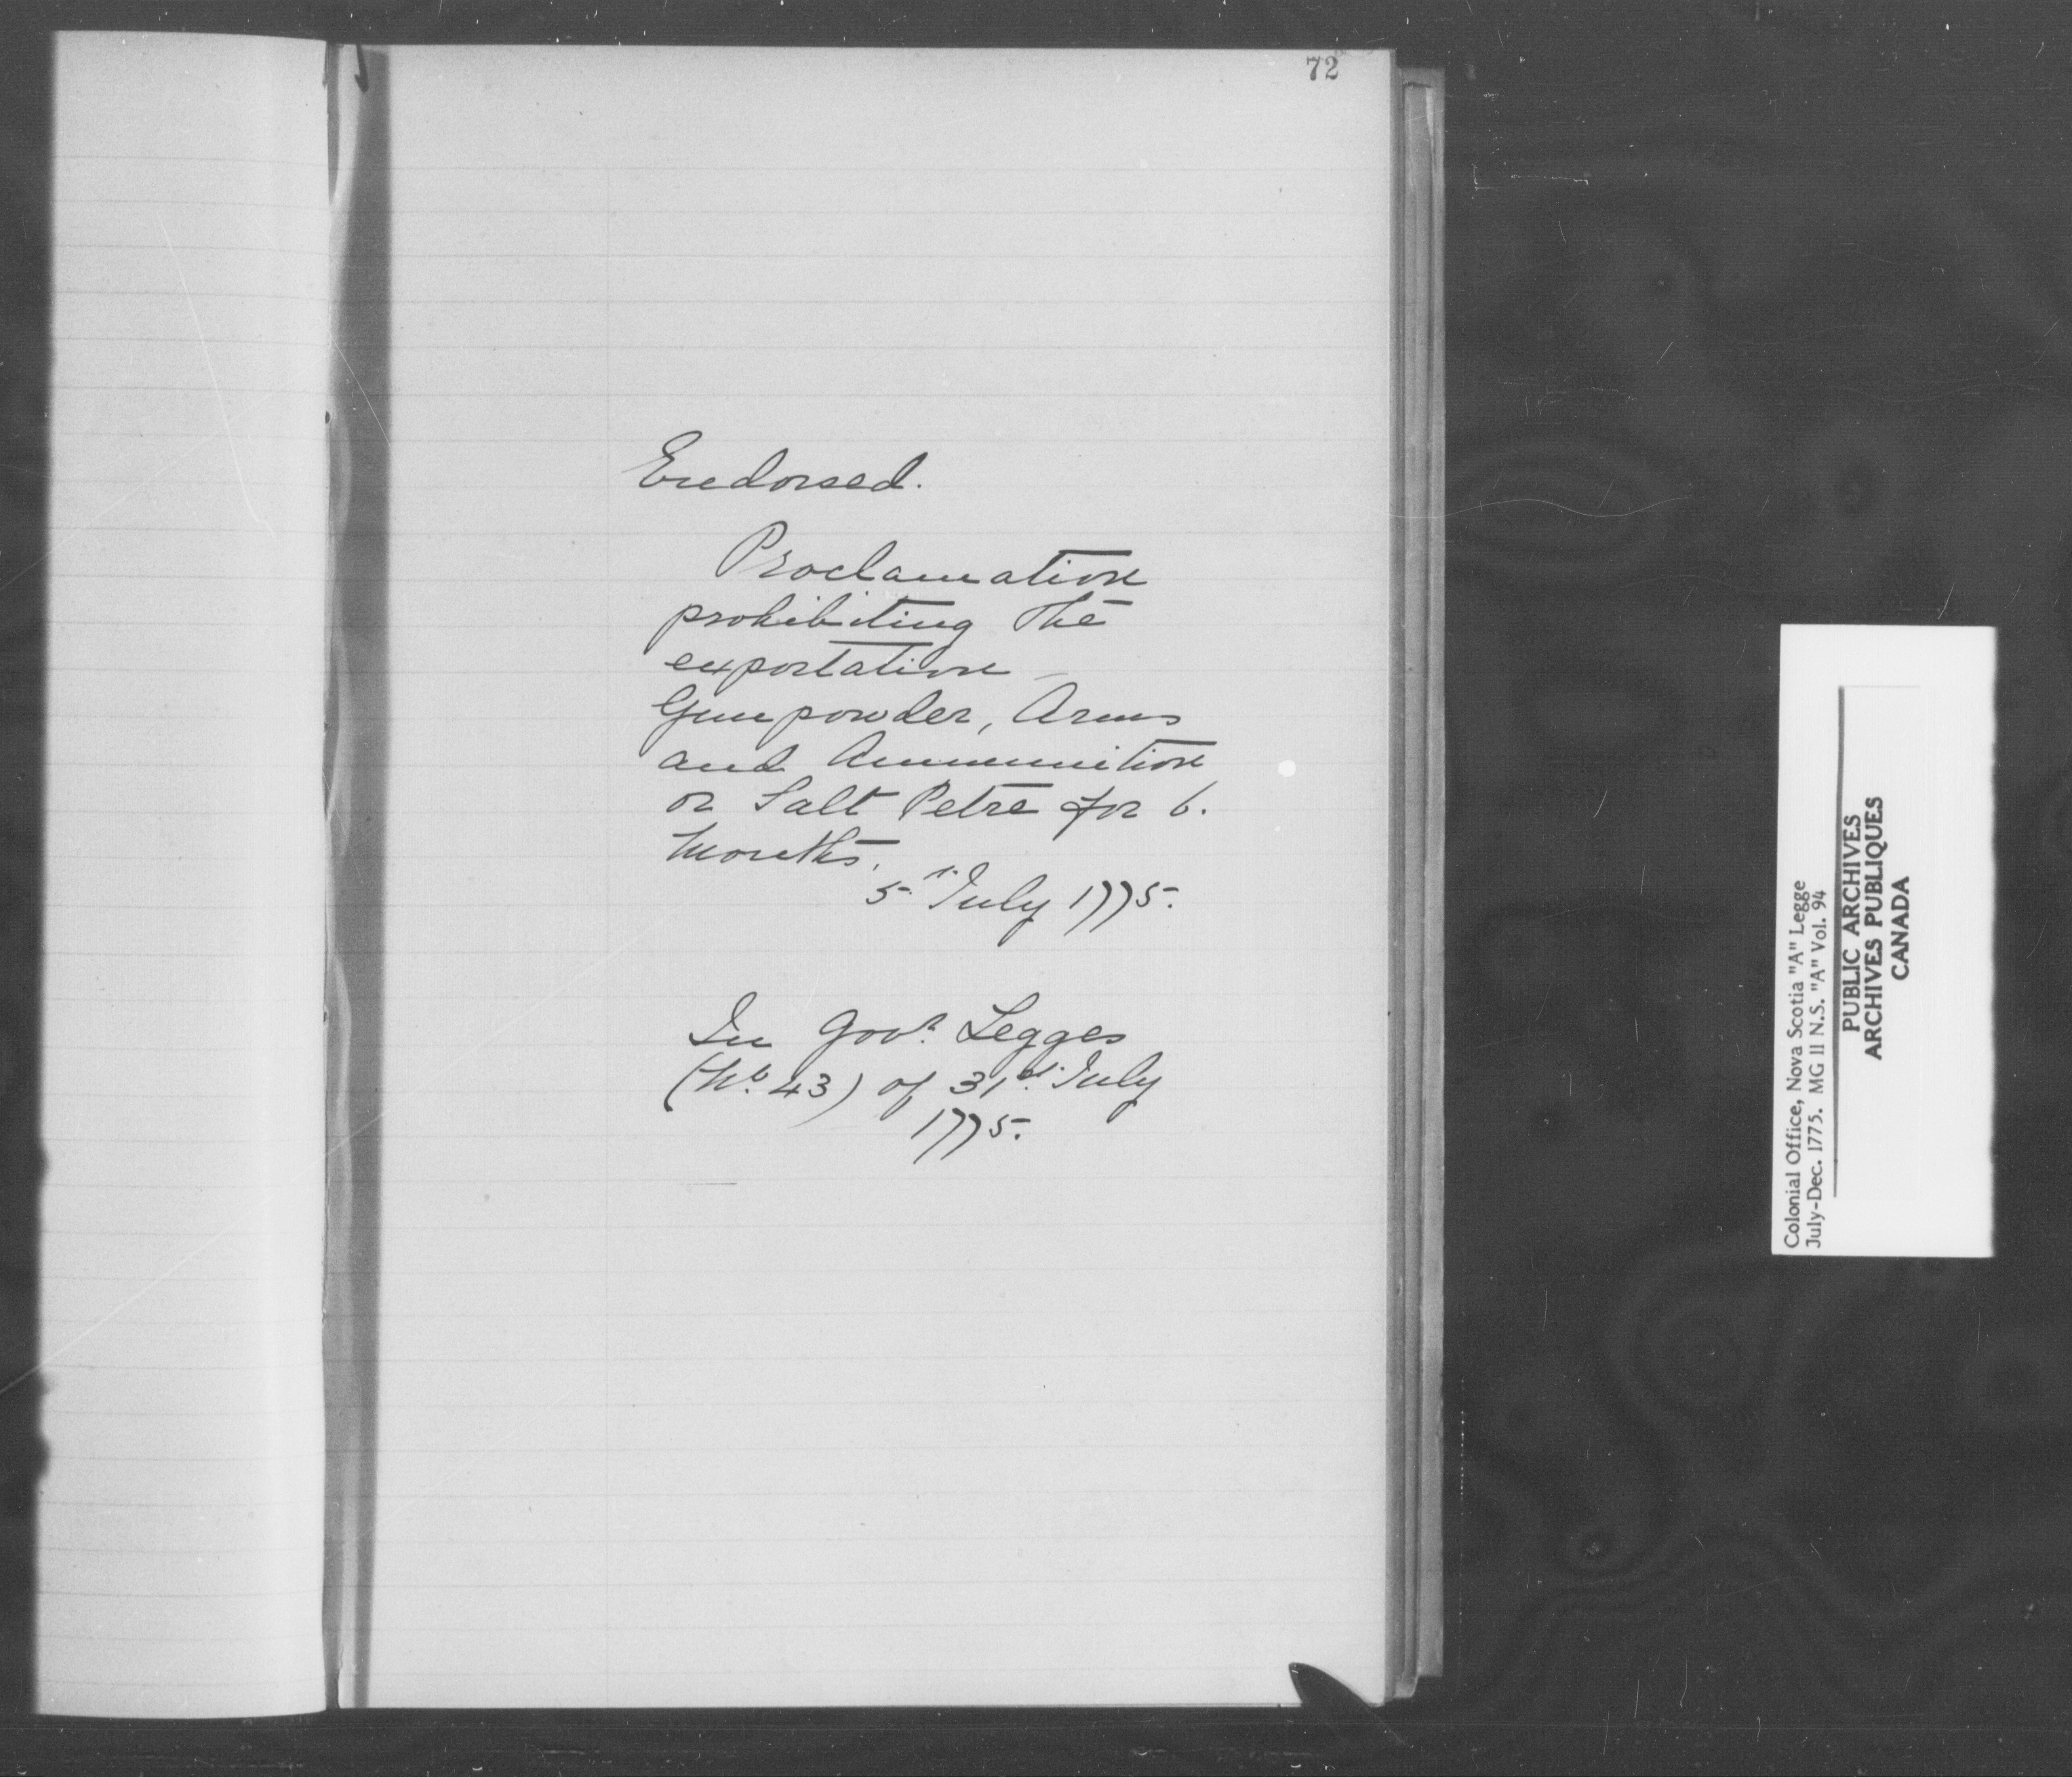 72
Endorsed.
Proclamation
prohibiting the
exportation
Gunpowder, Arms
and Ammunition
or Salt Petre for 6.
Months.
5th July 1775.
In Govr. Legges
(No. 43) of 31st. July
1775.
Colonial Office, Nova Scotia "A" Legge
July-Dec. 1775. MG 11 N.S. "A" Vol. 94
PUBLIC ARCHIVES
ARCHIVES PUBLIQUES
CANADA